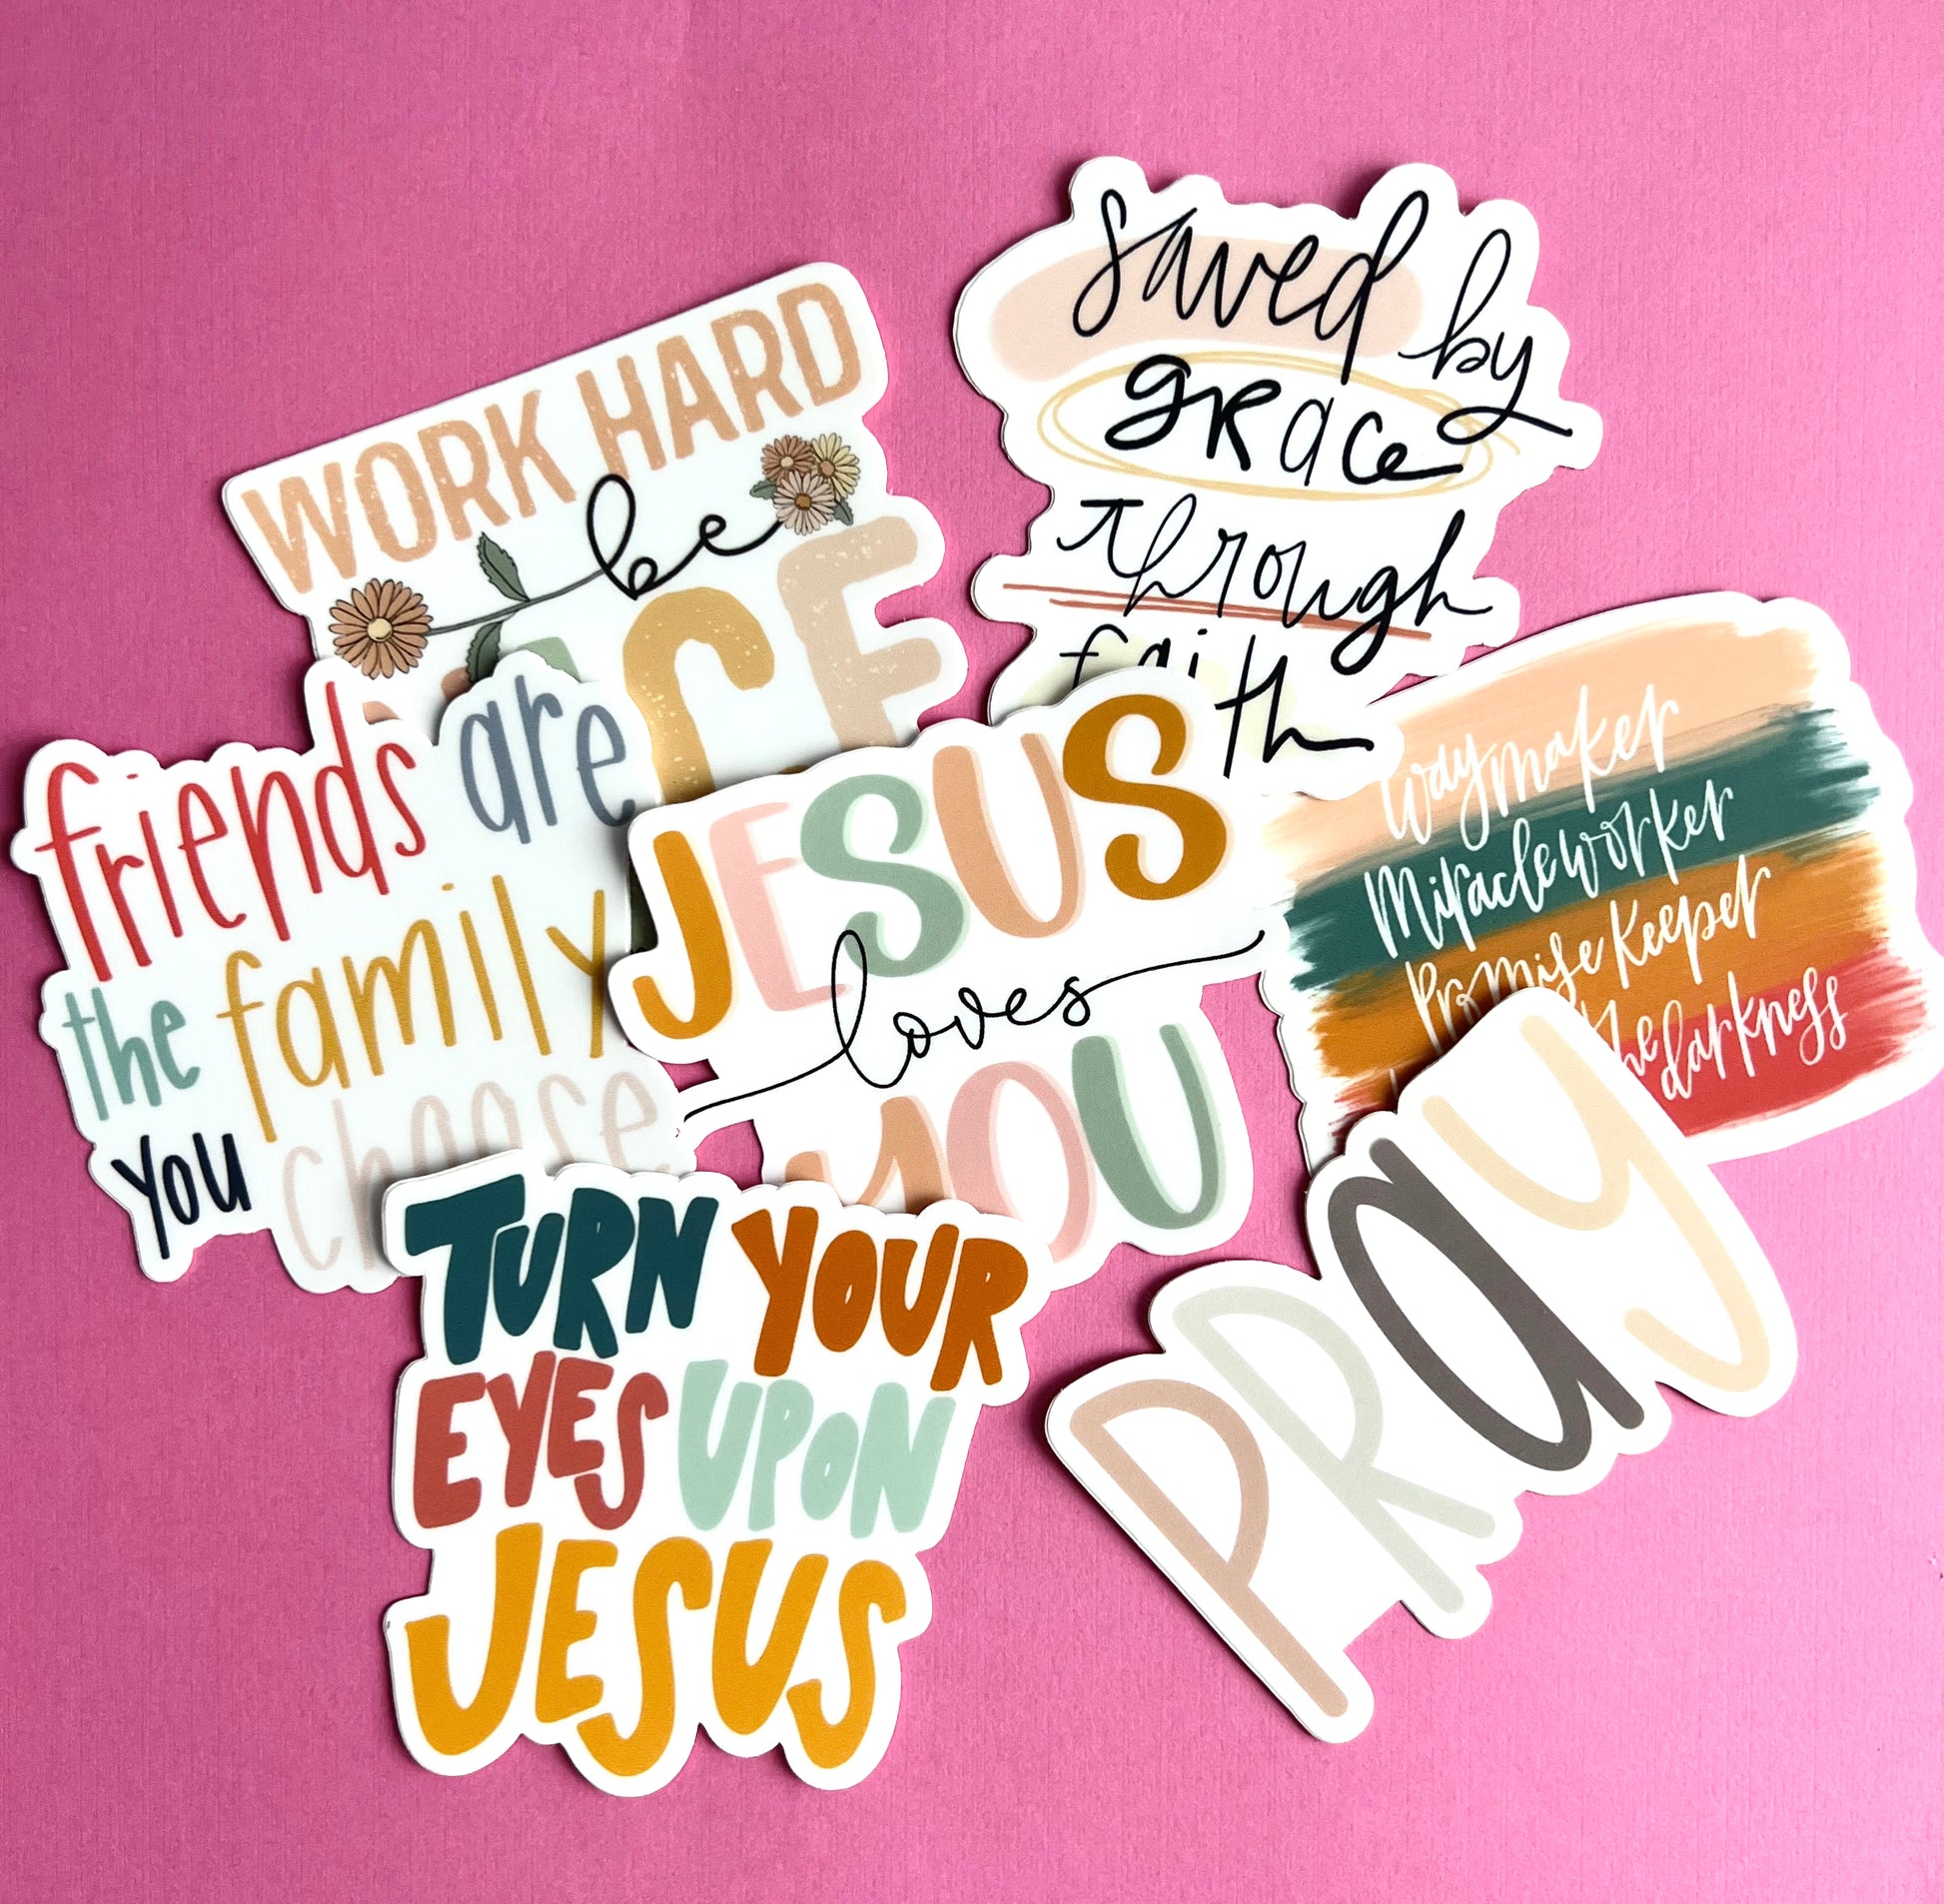 WORK HARD
be
saved by
grace
through
faith
friends are
the family
you choose
JESUS
loves
YOU
Way maker
Miracle worker
Promise Keeper
the darkness
TURN YOUR
EYES UPON
JESUS
PRay